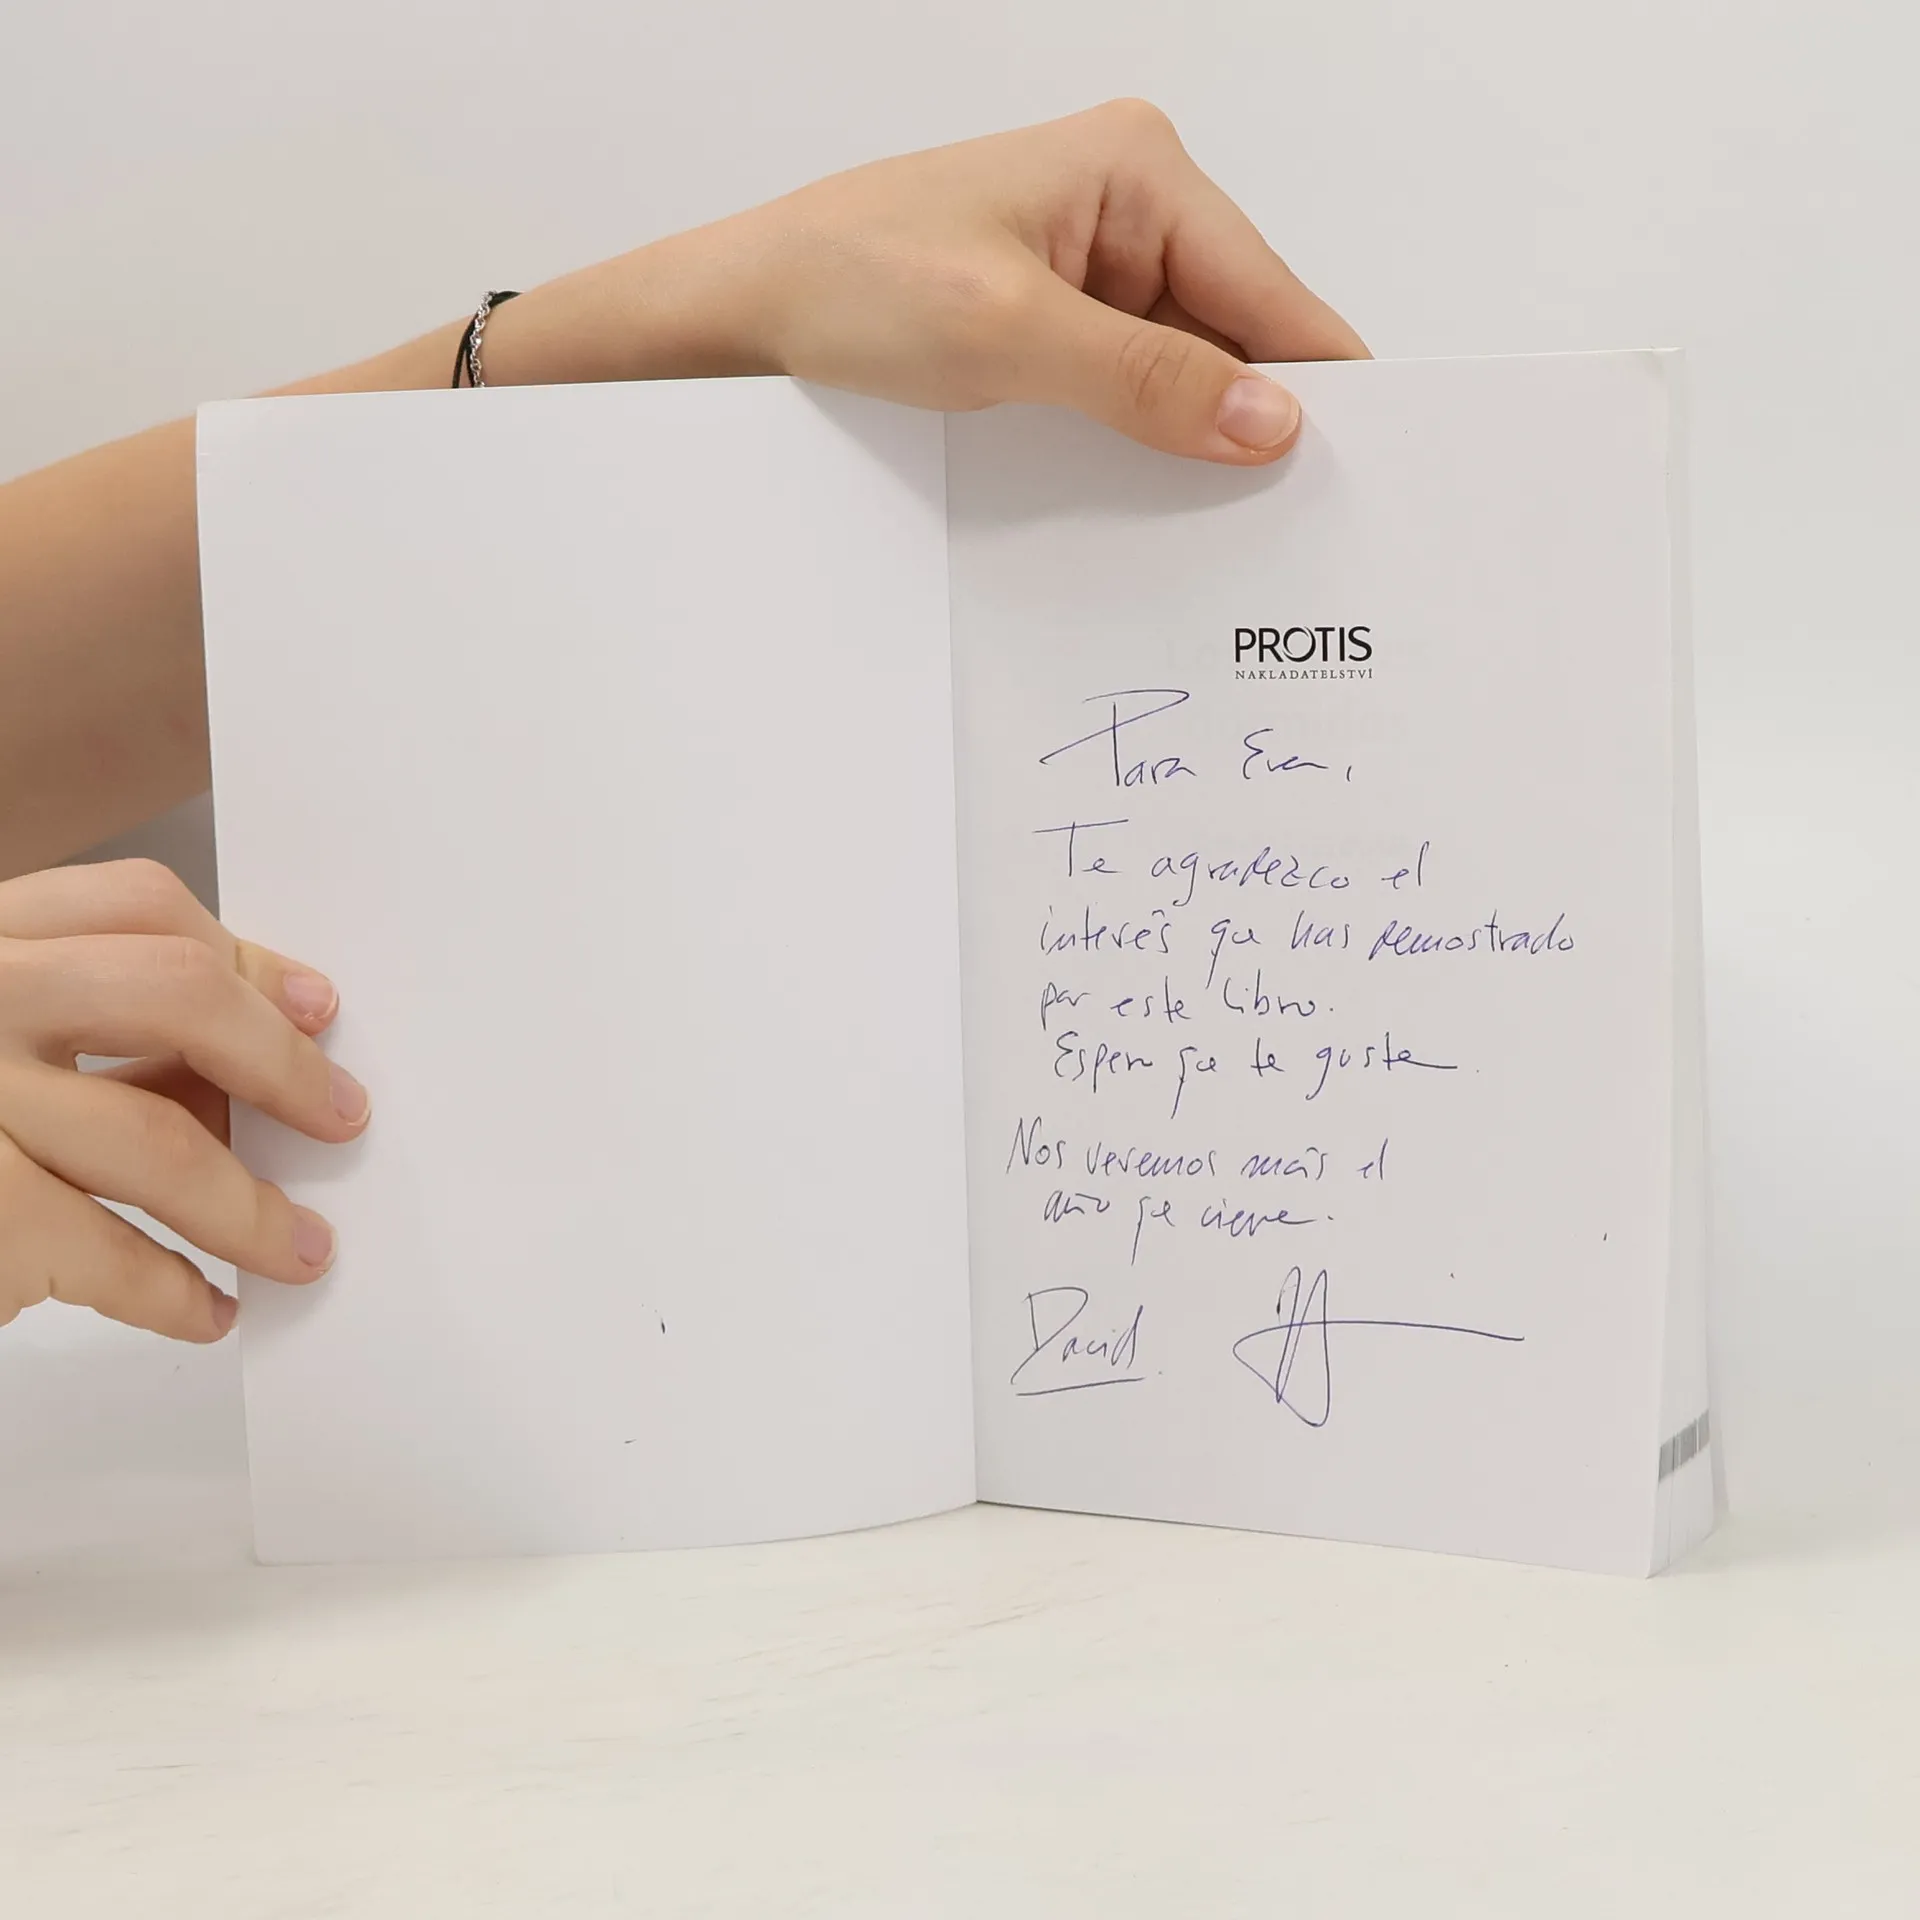 PROTIS
NAKLADATELSTVÍ
Para Eva,
Te agradezco el
interés que has demostrado
por este libro.
Espero que te guste.
Nos veremos más el
año que viene.
David